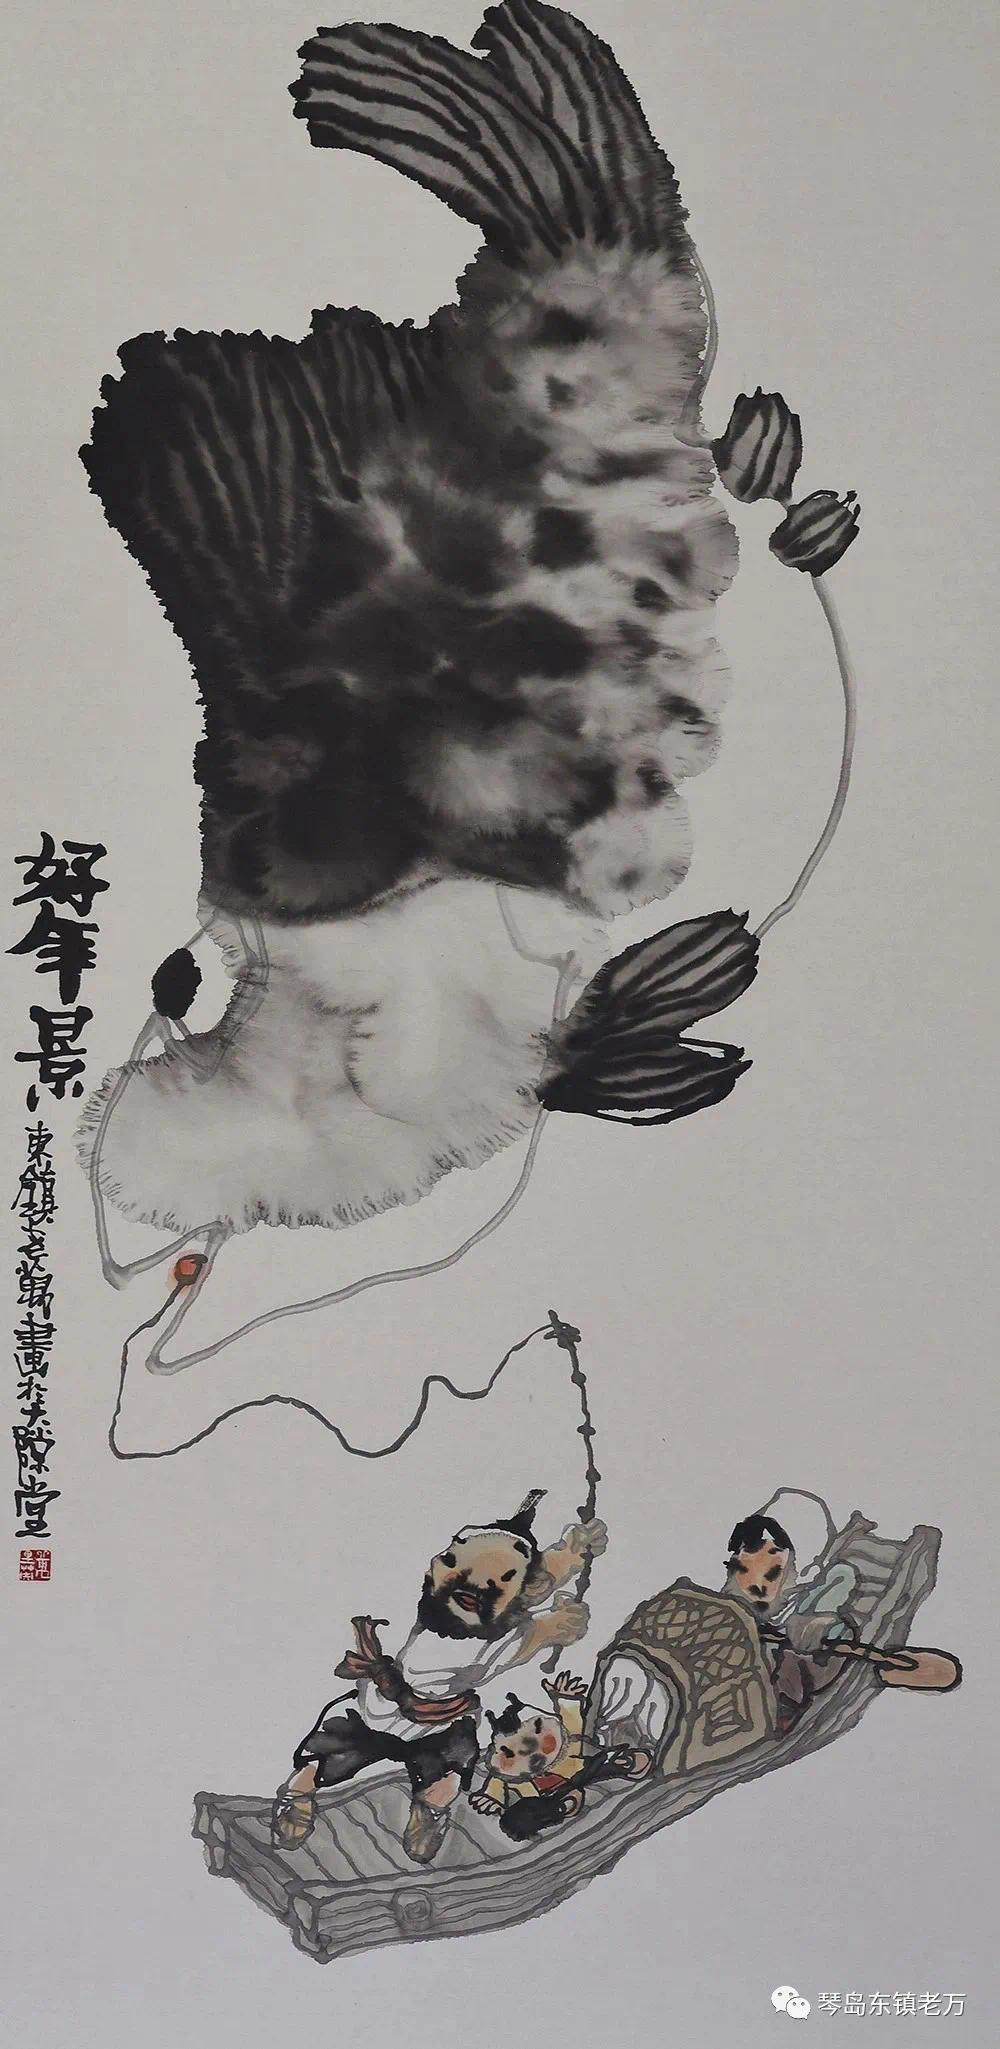 好年景
東鎮老萬畫於大隙堂
琴岛东镇老万